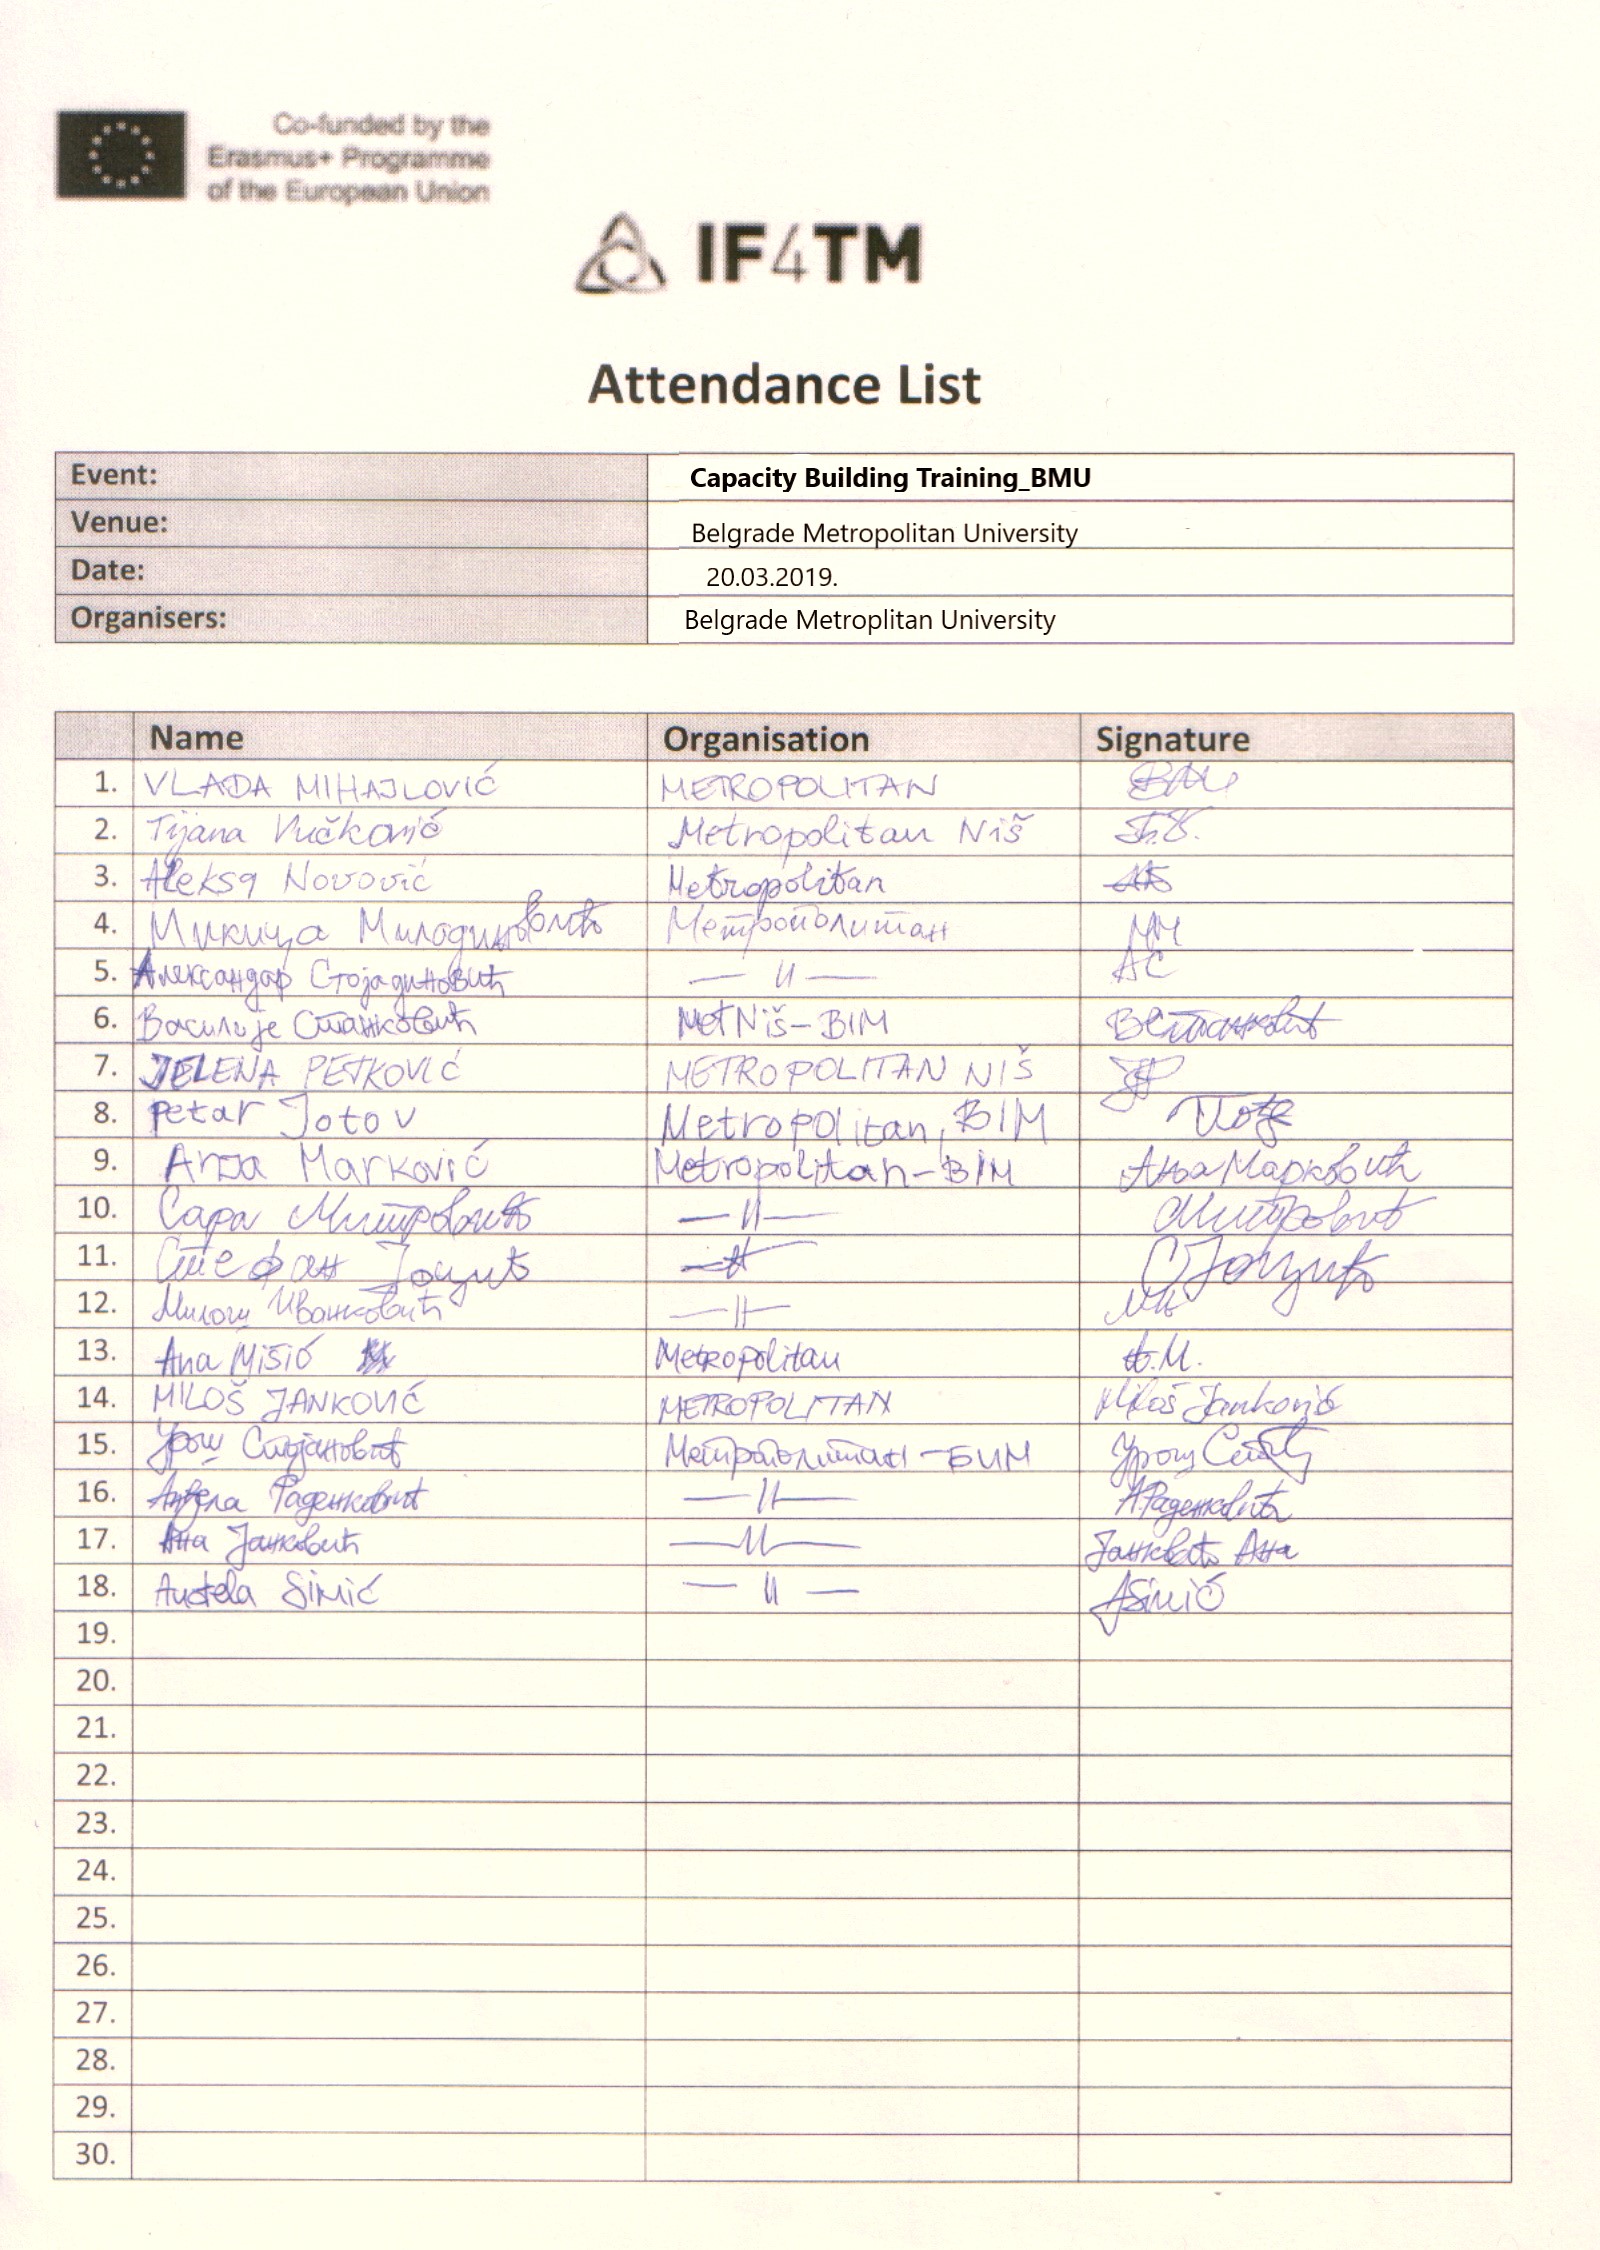 Co-funded by the
Erasmus+ Programme
of the European Union
IF4TM
Attendance List
Event: Capacity Building Training_BMU
Venue: Belgrade Metropolitan University
Date: 20.03.2019.
Organisers: Belgrade Metroplitan University
Name Organisation Signature
1. VLADA MIHAJLOVIĆ METROPOLITAN
2. Tijana Vučković Metropolitan Niš
3. Aleksa Novović Metropolitan
4. Микица Милодиновић Метрополитан ММ
5. Александар Стојадиновић — 11 — АС
6. Василије Станковић MetNiš-BIM ВСтанковић
7. JELENA PETKOVIĆ METROPOLITAN NIŠ
8. Petar Jotov Metropolitan, BIM
9. Anja Marković Metropolitan-BIM Ања Марковић
10. Сара Митровић — 11 — Митровић
11. Стефан Јоцић — 11 — СЈоцић
12. Милош Иванковић — 11 —
13. Ana Mišić Metropolitan A.M.
14. MILOŠ JANKOVIĆ METROPOLITAN Miloš Janković
15. Урош Стојановић Метрополитан-БИМ Урош
16. Анђела Раденковић — 11 — А.Раденковић
17. Ана Јанковић — 11 — Јанковић Ана
18. Anđela Simić — 11 — ASimić
19.
20.
21.
22.
23.
24.
25.
26.
27.
28.
29.
30.